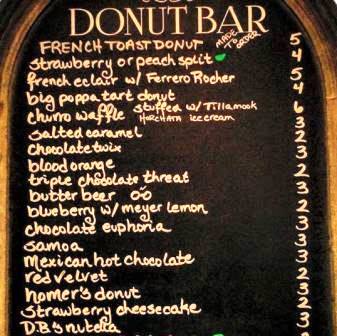 DONUT BAR
FRENCH TOAST DONUT MADE TO ORDER 5
strawberry or peach split 4
french eclair w/ Ferrero Rocher 5
big poppa tart donut 4
churro waffle stuffed w/ Tillamook HORCHATA ice cream 6
salted caramel 3
chocolate twix 3
blood orange 2
triple chocolate threat 3
butter beer 2
blueberry w/ meyer lemon 2
chocolate euphoria 3
samoa 3
Mexican hot chocolate 3
red velvet 2
homer's donut 2
Strawberry cheesecake 3
D.B's nutella 3